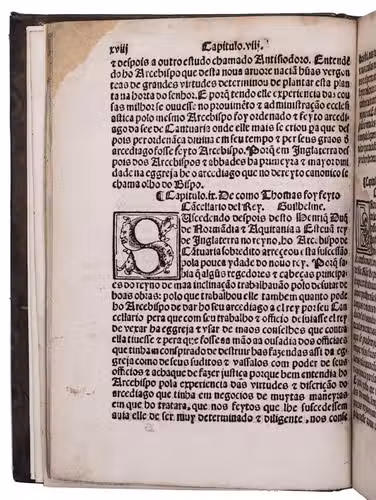 xviij Capitulo.viij.
& despois a outro estudo chamado Antisiodoro. Entendē
do ho Arcebispo que desta noua aruore naciā hūas vergon
teas de grandes virtudes determinou de plantar esta plan
ta na horta do senhor. E porq̄ tendo elle experiencia das cou
sas milhor se ouuesse no prouimēto & administração eccles
astica polo mesmo Arcebispo foy ordenado & feyto arcedi
ago da see de Cantuaria onde elle mais se criou pa que des
pois per ordenāça diuina em seu tempo & per seus graos d
arcediago fosse feyto Arcebispo. Porq̄ em Inglaterra des
pois dos Arcebispos & abbades ha primeyra & mayor dini
dade na egreja he o arcediago que no dereyto canonico se
chama olho do Bispo.
¶ Capitulo.ix. De como Thomas foy feyto
Cācellario del Rey. Guilhelme.
SUscedendo despois desto Henriq̄ Duq̄
de Normādia & Aquitania a Esteuā rey
de Inglaterra no reyno, ho Arcebispo de
Cātuaria sobredito arreçeou esta suscessão
pola pouca ydade do nouo rey. Porq̄ sa
bia q̄ algūs regedores & cabeças principa
es do reyno de maa inclinação trabalhauão polo desuiar de
boas obras: polo que trabalhou elle tambem quanto pode
ho Arcebispo de dar ho seu arcediago a el rey por seu Can
cellario pera que com seu trabalho & officio desuiasse el rey
de vexar ha egreja & vsar de maos conselhos que contra
ella tiuesse & pera que fosse aa mão aa ousadia dos officiaes
que tinham conspirado de destruir has fazendas assi da eg
greja como de seus suditos & vassalos com poder de seus
officios & achaque de fazer justiça porque bem entendia ho
Arcebispo pola experiencia das virtudes & discrição do
arcediago que tinha em negocios de muytas maneyras
em que ho tratara, que nos feytos que lhe suscedessem
auia elle de ser muy determinado & diligente, nos conse